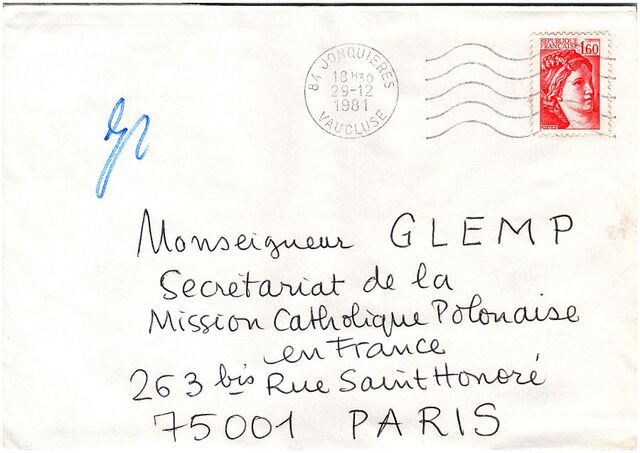 84 JONQUIERES
18H30
29-12
1981
VAUCLUSE
REPUBLIQUE
FRANÇAISE
1,60
Monseigneur GLEMP
Secrétariat de la
Mission Catholique Polonaise
en France
263 bis Rue Saint Honoré
75001 PARIS